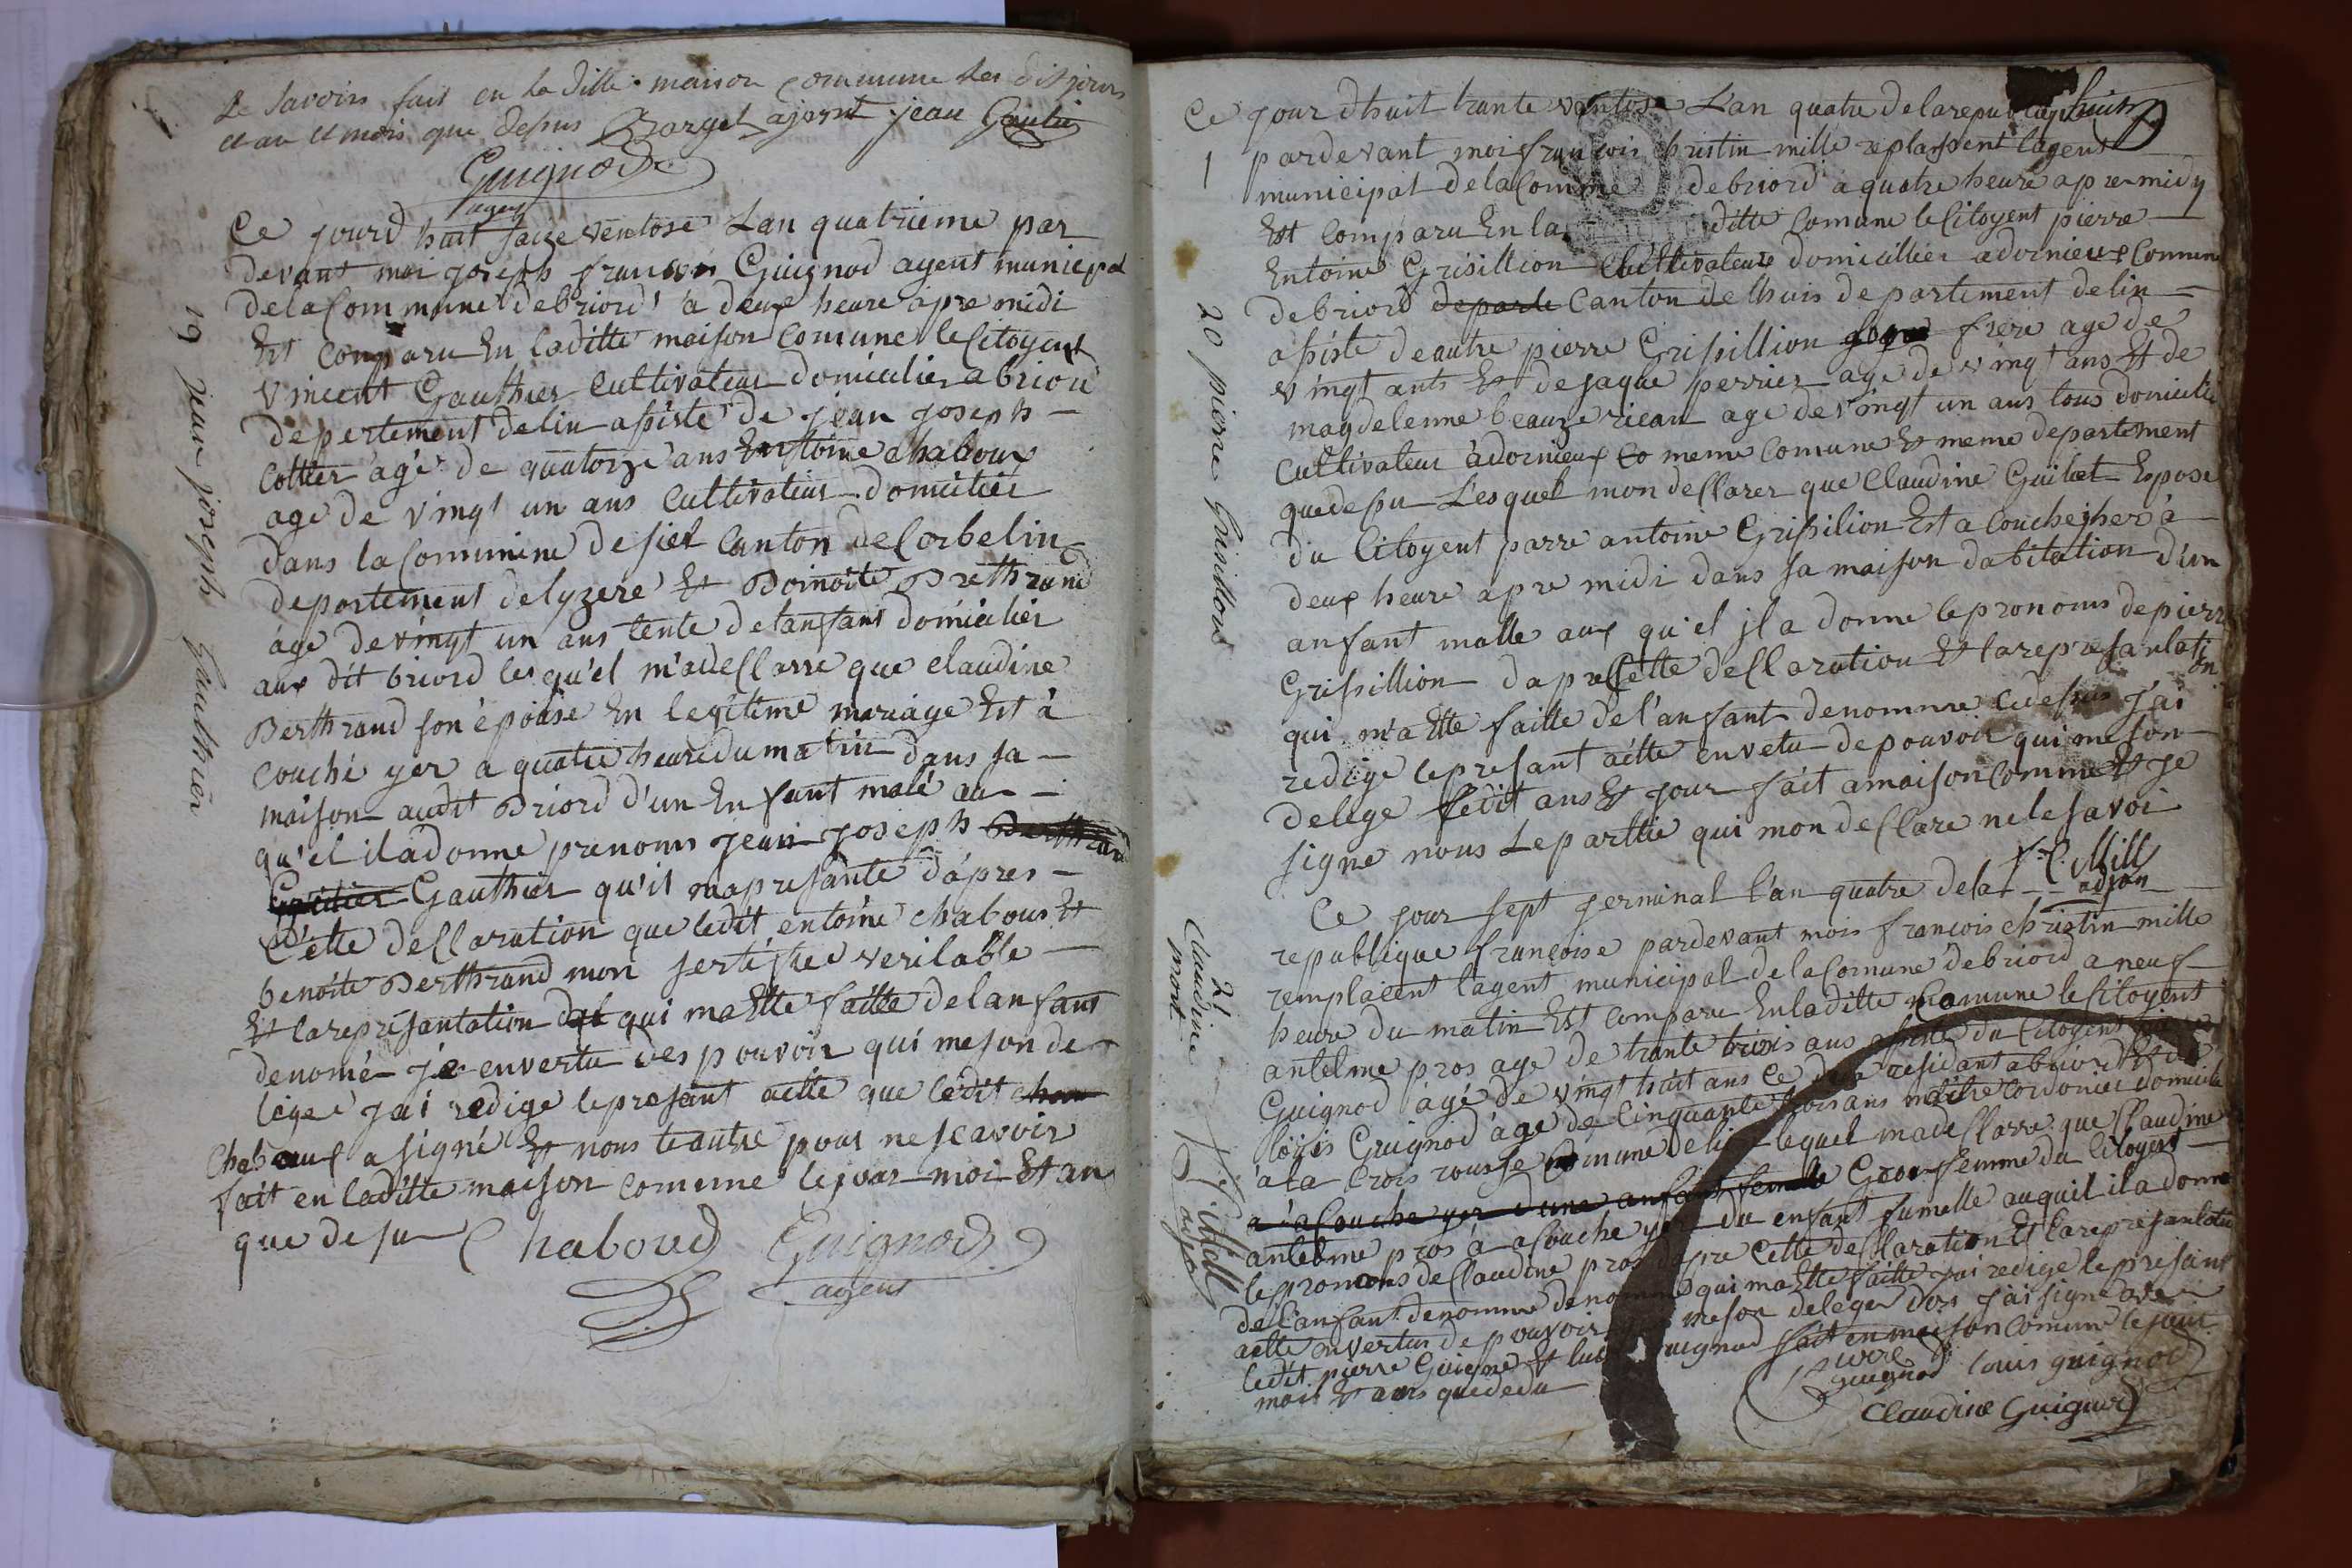 le Savoirs fait en la ditte maison commune les dit jours
et an et mois que desus Barget ajoint jean Gautie
Guignod
agent
Ce jourd huit saize ventose Lan quatrieme par
devant moi joseph francois Guignod agent municipal
delaCommune debriord a deux heure apre midi
Est Comparu En laditte maison Comune le Citoyent
vincent Gauthier Cultivateur domicilier a briord
depertement delin asisté de jean joseph
Cottier agé de quatorze ans Entoine chaboux
age de vingt un ans Cultivateur domicilier
dans la Commune de siet Canton de Corbelin
departement delyzere Et Benoite Brethrand
age devingt un ans tente delanfant domicilier
aux dit briord lesqu'el m'adesllarre que claudine
Berthrand son épouse En legitime mariage Est à
Couché yer a quatre heuredumatin dans sa
maison audit Briord d'un Enfant malé au
qu'el iladonne prenoms jean joseph Berthrand
Gautier Gauthier qu'il maprésante d'apres
Cette desllaration que ledit entoine chaboux Et
benoite Berthrand mon sertifiée veritable
Et lareprésantation det qui maEtte faitte delanfant
denomé je envertu des pouvoir qui meson de
legée jai redige lepresant actte que ledit chau
Chaboux a signé Et nous le autre pour ne scavoir
fait en laditte maison Comune lejour moi Et an
que desu Chaboud Guignod
agent
19 jean joseph Gauthier
Ce jour dhuit trante vantose Lan quatre delarepublique huit
1
pardevant moi francois christin mille remplassent lagent
municipal delaComune debriord a quatre heure apremidy
Est Comparu En la ditte Comune le Citoyent pierre
Entoine Grisillion Cultivateur domicillier adornieux Comune
debriord departe Canton de lhuis departement delin
asiste deautre pierre Grisillion frere age de
vingt ants Et dejaque perrier age de vingt ans Et de
magdelenne beauzerieau age devingt un ans tous domicilié
Cultivateur àdornieux Co meme Comune Et meme departement
quedesu Lesquel mon desllarer que Claudine Guilet Espose
du Citoyent parre antoine Grisilion Est a Couche yher à
deux heure apre midi dans sa maison dabitation d'un
anfant malle aux qu'el jl a donne lepronoms depierre
Grissillion dapreCette desllaration Et lareprésantati
on
qui m'a Ette faitte de l'anfant denomme cidesus J'ai
redige lepresant actte envetu depouvoir qui meson
delege ledit ans Et jour fait amaison Comme Et je
signe nous Leparttie qui mon desllare nelesavoi
F. C. Mill
adjoin
20 pierre Grisillion
Ce jour sept germinal l'an quatre dela
republique francoise pardevant mois francois christin mille
remplacent lagent municipal delaComune debriord a neuf
heure du matin Est Comparu Enladitte Comune le Citoyent
antelme pros age de trante trois ans asisté du Citoyent pierre
Guignod àgé de vingt huit ans Ce deux residant abriord Et de
loüis Guignod àge de Cinquante trois ans maitre Cordonier domicilie
à la Crois rousse Comune de lequel madesllarre que Claudine
a aCouche yer d'une anfant femele Gros femme du Citoyent
antelme pros à aCouche yer du enfant fumelle auquil il a donne
lepronoms de Claudine pros dapre Cette desllaration Et lareprésantatio
de l'anfant denomme denommé qui maEtte faitte jai redige lepresant
actte envertus de pouvoir meson deleger dors jai signe avec
ledit pierre Guigne Et luis Guignod fait en maison Comune lejour
mois Et ans quededu
pierre guignod louis guignod
Claudine Guignod
21
Claudine
mort
F. C. Mill
adjoin